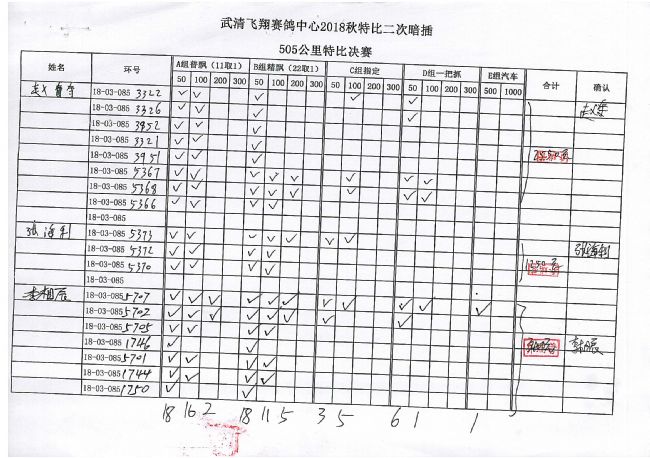 武清飞翔赛鸽中心2018秋特比二次暗插
505公里特比决赛
姓名 环号 A组普飘（11取1） B组精飘（22取1） C组指定 D组一把抓 E组汽车 合计 确认
50 100 200 300 50 100 200 300 50 100 200 300 50 100 200 300 500 1000
18-03-085 3322 ✓ ✓ ✓ ✓ ✓
18-03-085 3326 ✓ ✓ ✓ ✓
18-03-085 3952 ✓ ✓ ✓
18-03-085 3321 ✓ ✓ ✓
18-03-085 3951 ✓ ✓ ✓
18-03-085 5367 ✓ ✓ ✓ ✓ ✓ ✓ ✓ ✓
18-03-085 5368 ✓ ✓ ✓ ✓ ✓ ✓ ✓ ✓
18-03-085 5366 ✓ ✓ ✓ ✓
18-03-085
张海利 18-03-085 5373 ✓ ✓ ✓ ✓ ✓ ✓ ✓ 张海利
18-03-085 5372 ✓ ✓ ✓ ✓
18-03-085 5370 ✓ ✓ ✓ ✓
18-03-085
18-03-085 5707 ✓ ✓ ✓ ✓ ✓ ✓ ✓ ✓ ✓ ✓ ✓
18-03-085 5702 ✓ ✓ ✓ ✓ ✓ ✓ ✓ ✓
18-03-085 5705 ✓ ✓ ✓ ✓
18-03-085 1746 ✓ ✓
18-03-085 5701 ✓ ✓ ✓ ✓
18-03-085 1744 ✓ ✓ ✓ ✓
18-03-085 1750 ✓ ✓
18 16 2 18 11 5 3 5 6 1 1